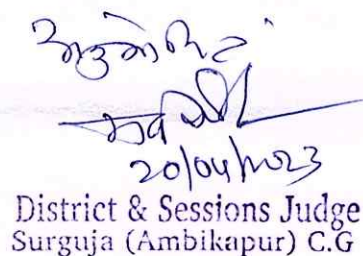 अनुमोदित
20/04/2023
District & Sessions Judge
Surguja (Ambikapur) C.G